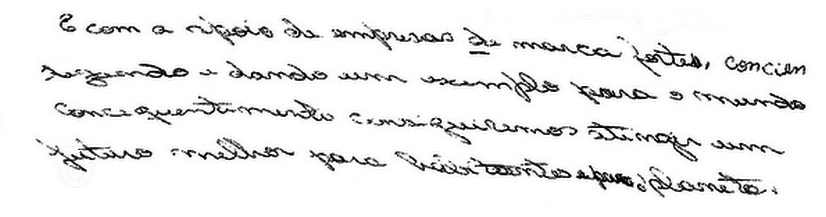 E com a apoio de empresas de marca fortes, concien
tizando e dando um exemplo para o mundo
consequentemente conseguiremos atingir um
futuro melhor para habitantes e planeta.